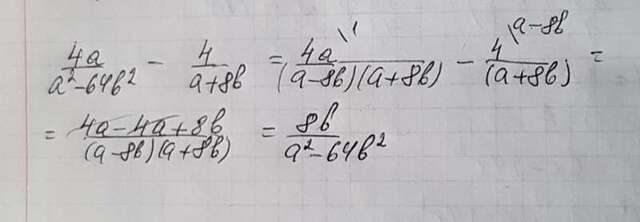 4a/(a²-64b²) - 4/(a+8b) = 4a\¹/((a-8b)(a+8b)) - 4\a-8b/(a+8b) =
= (4a-4a+8b)/((a-8b)(a+8b)) = 8b/(a²-64b²)